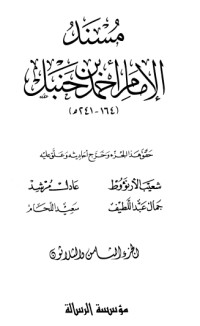 مسند
الإمام أحمد بن حنبل
(١٦٤-٢٤١ھ)
حقق هذا الجزء وخرج أحاديثه وعلق عليه
شعيب الأرنؤوط عادل مرشد
جمال عبد اللطيف سعيد اللحام
الجزء الثامن والثلاثون
مؤسسة الرسالة